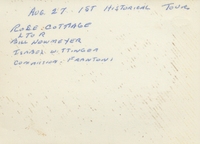 AUG 27 - 1ST HISTORICAL TOUR
ROSE COTTAGE
L TO R
BILL NEWMEYER
ISABEL WITTINGER
COMMISING FRANTONI